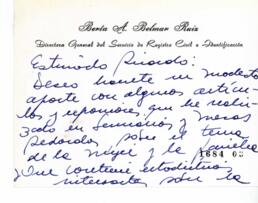 Berta A. Belmar Ruiz
Directora General del Servicio de Registro Civil e Identificación
Estimado Ricardo:
Deseo hacerte un modesto
aporte con algunos artícu-
los y reponencias, que he reali-
zado en seminarios y mesas
redondas sobre el tema
de la mujer y la familia
1684 02
Que contiene estadísticas
interesantes sobre la